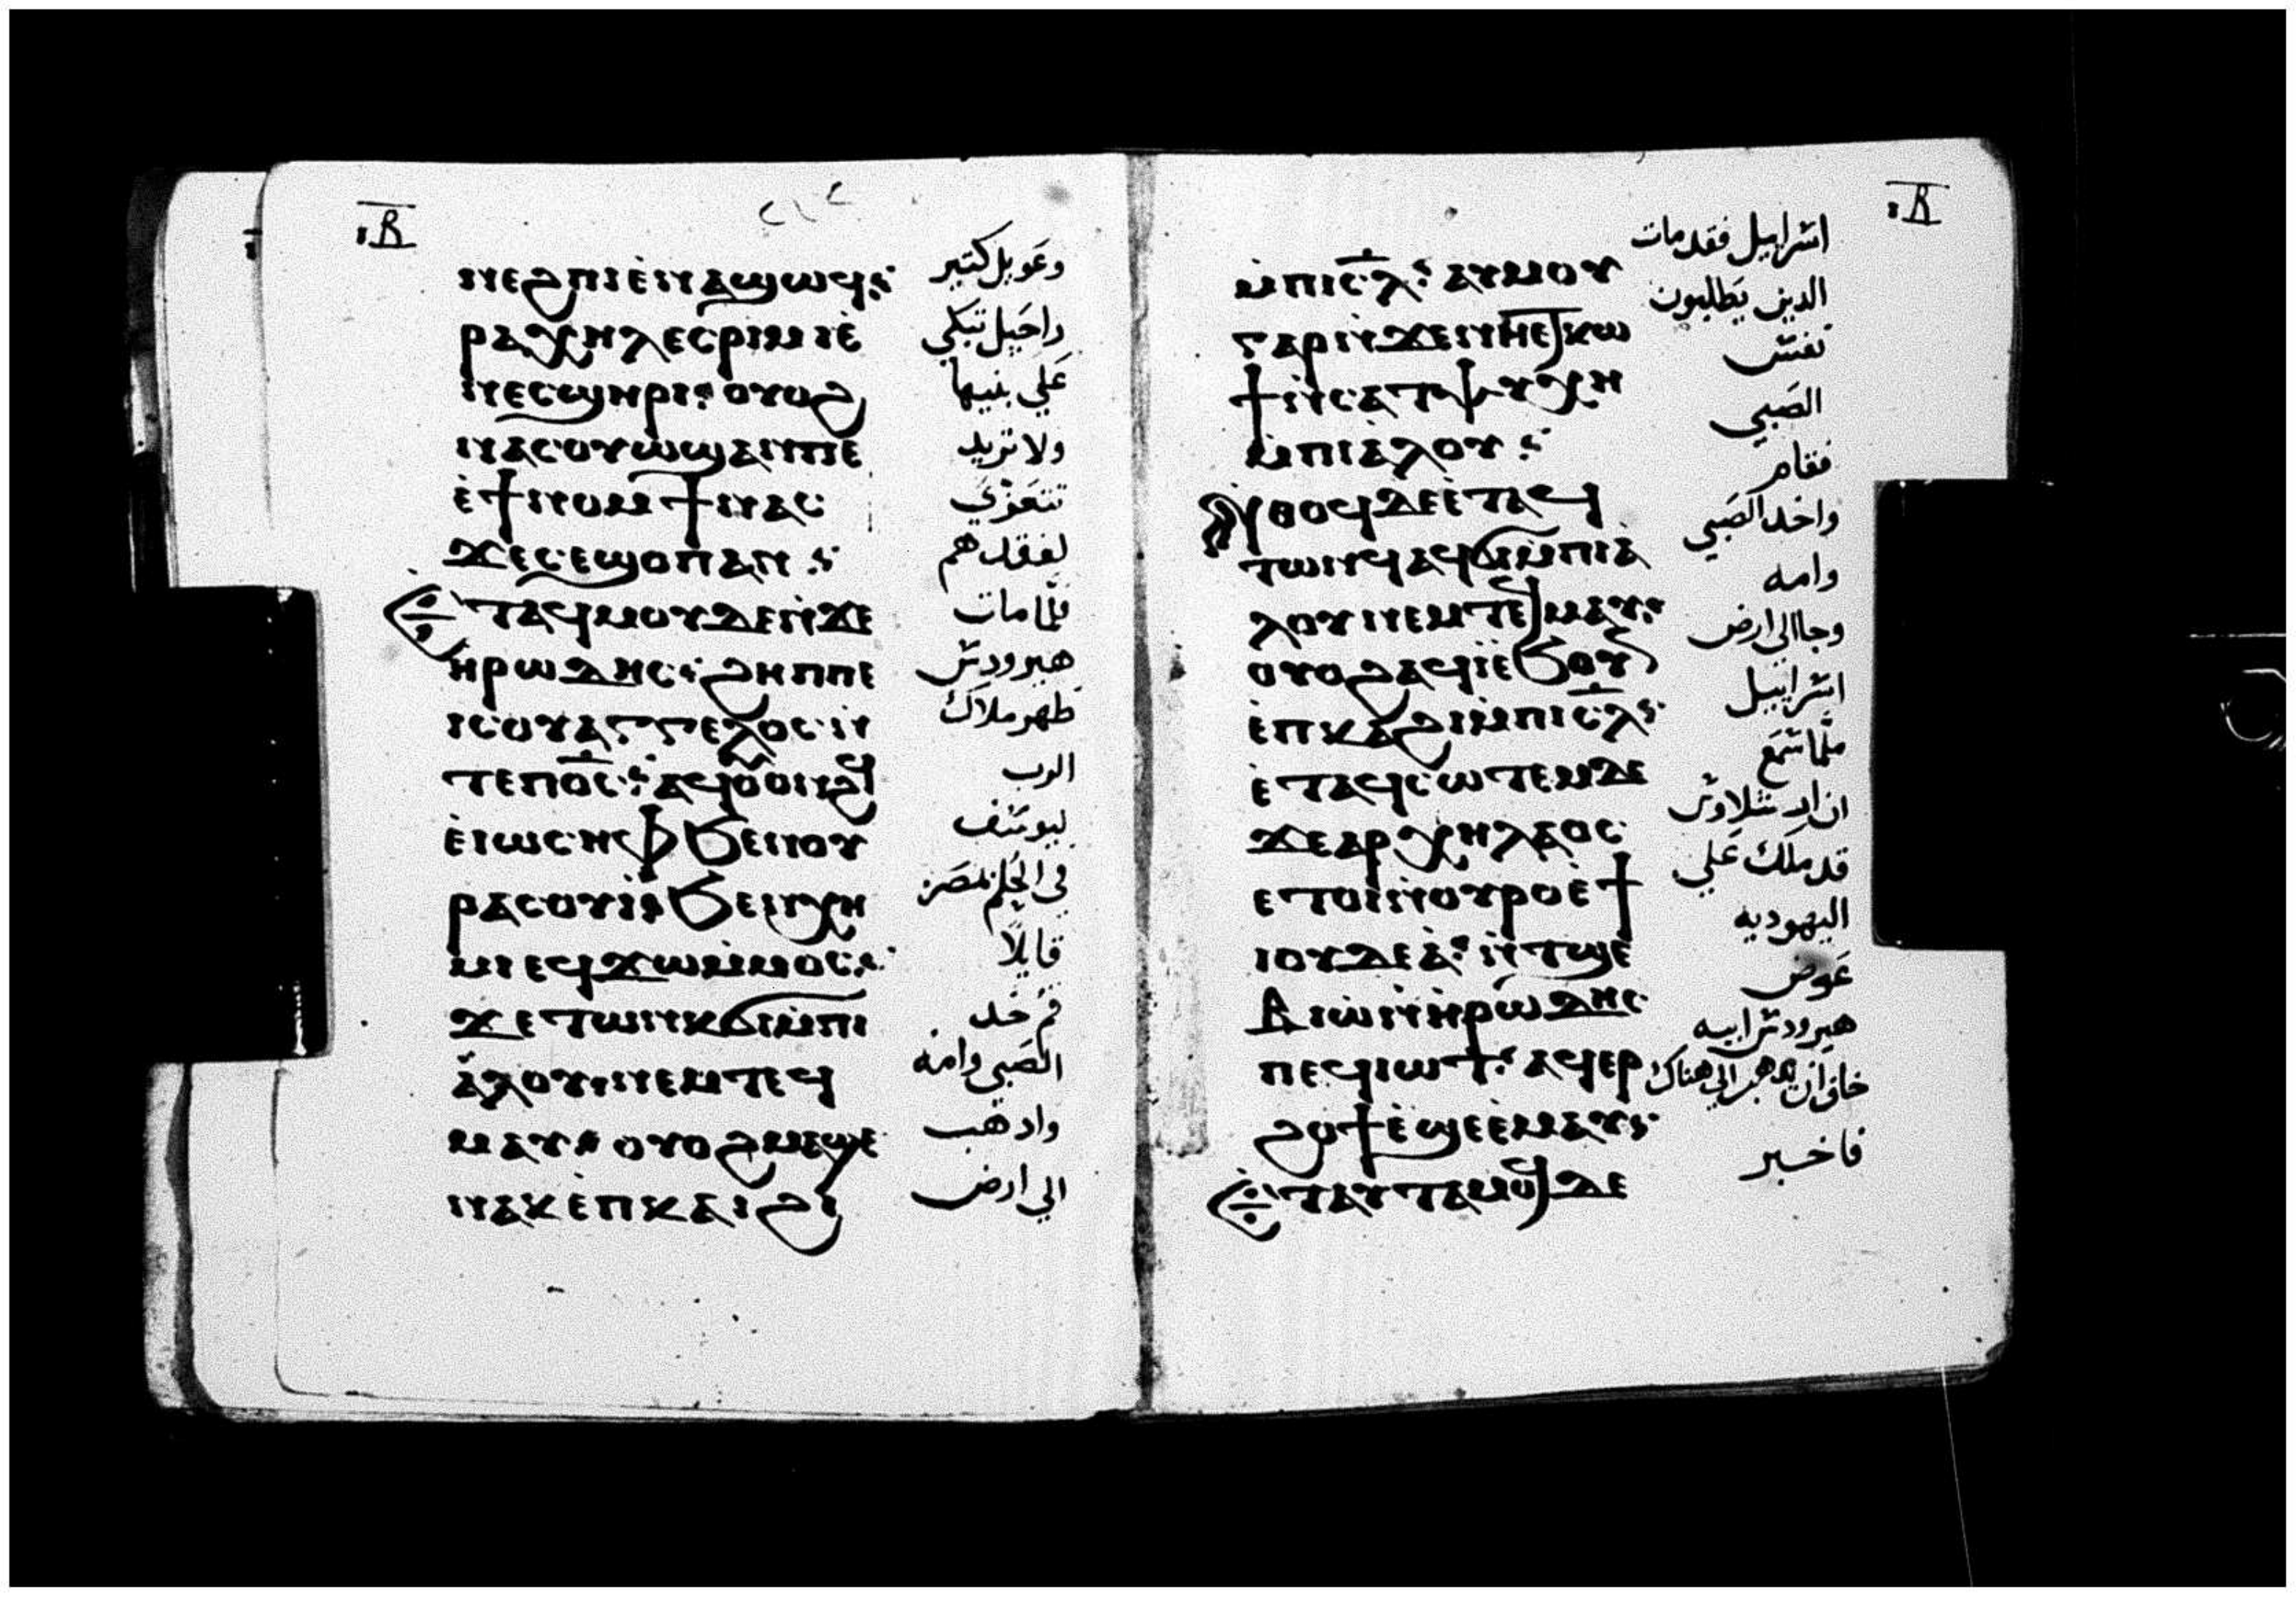 ⲓⲃ
ⲛⲉϩⲡⲓ ⲉ̀ⲛⲁϣⲱϥ
ⲣⲁⲭⲏⲗ ⲉⲥⲣⲓⲙⲓ ⲉ̀
ⲛⲉⲥϣⲏⲣⲓ ⲟⲩⲟϩ
ⲛⲁⲥⲟⲩⲱϣ ⲁⲛ ⲡⲉ
ⲉ̀ϯⲛⲟⲙϯ ⲛⲁⲥ
ϫⲉ ⲥⲉϣⲟⲡ ⲁⲛ
ⲉⲧⲁϥⲙⲟⲩ ⲇⲉ ⲛ̀ϫⲉ
ⲏⲣⲱⲇⲏⲥ ϩⲏⲡⲡⲉ
ⲓⲥ ⲟⲩⲁⲅⲅⲉⲗⲟⲥ ⲛ̀
ⲧⲉ ⲡⲟ̅ⲥ̅ ⲁϥⲟⲩⲟⲛϩϥ
ⲉ̀ⲓⲱⲥⲏⲫ ϧⲉⲛ ⲟⲩ
ⲣⲁⲥⲟⲩⲓ̀ ϧⲉⲛ ⲭⲏ
ⲙⲓ ⲉϥϫⲱ ⲙ̀ⲙⲟⲥ
ϫⲉ ⲧⲱⲛⲕ ϭⲓ ⲙ̀ⲡⲓ
ⲁ̀ⲗⲟⲩ ⲛⲉⲙ ⲧⲉϥ
ⲙⲁⲩ ⲟⲩⲟϩ ⲙⲁϣⲉ
ⲛⲁⲕ ⲉ̀ⲡⲕⲁϩⲓ
وعويل كتير
راحيل تبكي
علي بنيها
ولا تريد
تتعزي
لفقدهم
فلما مات
هيرودس
ظهر ملاك
الرب
ليوسف
في الحلم بمصر
قايلًا
قم خد
الصبي وامه
وادهب
الي ارض
ⲓⲃ
ⲙ̀ⲡⲓⲥ̅ⲗ̅ ⲁⲩⲙⲟⲩ
ⲅⲁⲣ ⲛ̀ϫⲉ ⲛⲏ ⲉⲧⲕⲱ
ϯ ⲛ̀ⲥⲁ ⲧ̀ⲯⲩⲭⲏ
ⲙ̀ⲡⲓⲁ̀ⲗⲟⲩ
ⲛ̀ⲑⲟϥ ⲇⲉ ⲉ̀ⲧⲁϥ
ⲧⲱⲛϥ ⲁϥϭⲓ ⲙ̀ⲡⲓⲁ̀
ⲗⲟⲩ ⲛⲉⲙ ⲧⲉϥⲙⲁⲩ
ⲟⲩⲟϩ ⲁϥⲓ̀ ⲉ̀ϧⲟⲩⲛ
ⲉ̀ⲡⲕⲁϩⲓ ⲙ̀ⲡⲓⲥ̅ⲗ̅
ⲉ̀ⲧⲁϥⲥⲱⲧⲉⲙ ⲇⲉ
ϫⲉ ⲁⲣⲭⲏⲗⲁⲟⲥ
ⲉⲧⲟⲓ ⲛ̀ⲟⲩⲣⲟ ⲉ̀ϯ
ⲓⲟⲩⲇⲉⲁ̀ ⲛ̀ⲧϣⲉ
ⲃⲓⲱ̀ ⲛ̀ⲏⲣⲱⲇⲏⲥ
ⲡⲉϥⲓⲱⲧ ⲁϥⲉⲣ
ϩⲟϯ ⲉ̀ϣⲉ ⲉ̀ⲙⲁⲩ
ⲉⲧⲁⲩⲧⲁⲙⲟϥ ⲇⲉ
اسراييل فقد مات
الدين يطلبون
نفس
الصبي
فقام
واخد الصبي
وامه
وجا الي ارض
اسراييل
فلما سمع
ان ارشلاوس
قد ملك علي
اليهوديه
عوض
هيرودس ابيه
خاف ان يدهب الي هناك
فاخبر